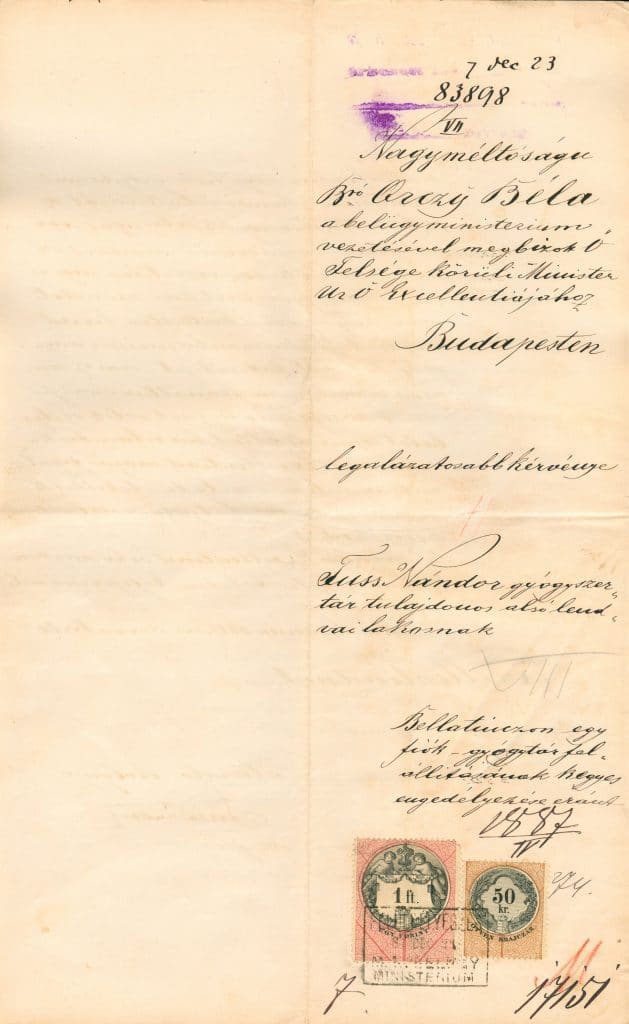 7 dec 23
83898
VII
Nagyméltóságu
Bró Orczy Béla
a belügyministerium
vezetésével megbizott Ő
Felsége körüli Minister
Ur Ő Excellentiájához
Budapesten
legalázatosabb kérvénye
Fuss Nándor gyógyszer„
tár tulajdonos alsó lend„
vai lakosnak
VIII
Bellatinczon egy
fiók-gyógytár fel-
állitásának kegyes
engedélyezése eránt
1887
IV
274.
1 ft.
EGY FORINT
50
kr.
ÖTVEN KRAJCZÁR
MINISTERIUM
7.
17151